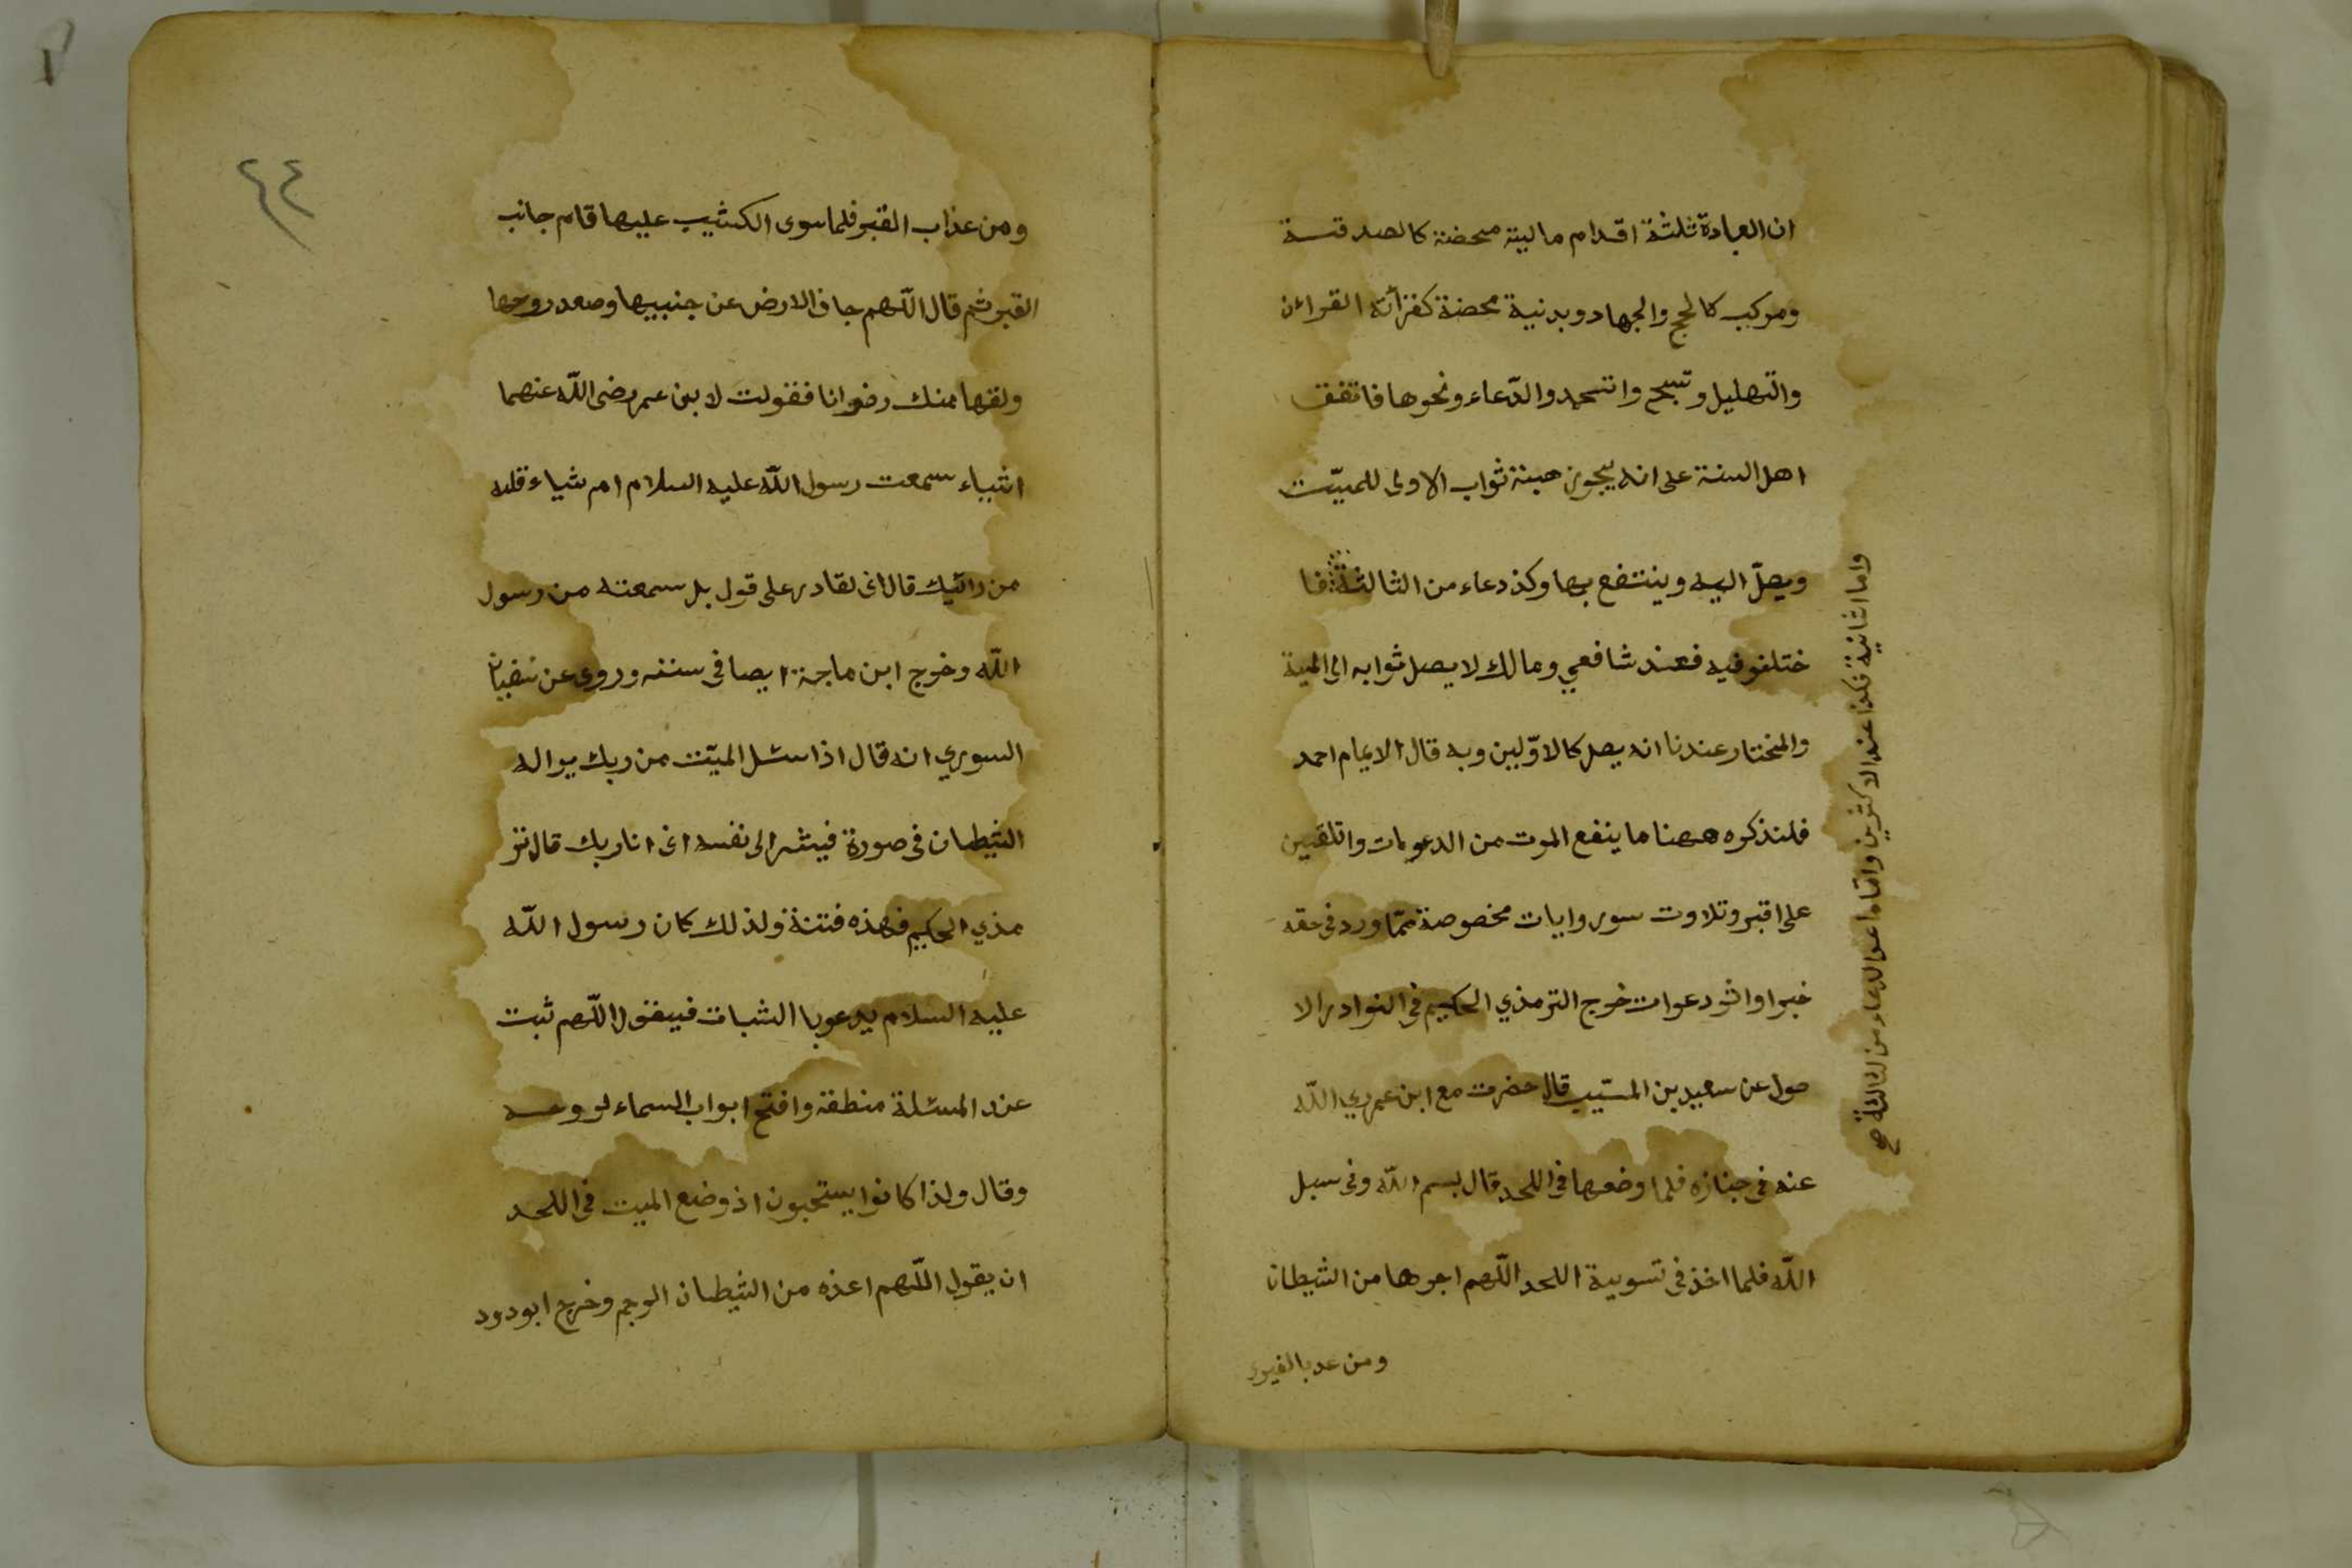 ان العبادة ثلثة اقدام مالية محضة كالصدقة
ومركب كالحج والجهاد وبدنية محضة كقرأته القرائن
والتهليل وتسبح واتسحمد والدّعاء ونحوها فاتفق
اهل السنة على انه يجوز هبة ثواب الاولى للميّت
ويصلّ اليه وينتفع بها وكذ دعاء من الثالثة فا
ختلفو فيه فعند شافعي ومالك لا يصل ثوابه الى المية
والمختار عندنا انه يصل كالاوّلين وبه قال الايمام احمد
فلنذكره ههنا ما ينفع الموت من الدعوات واتلقين
على اقبر وتلاوت سور وايات مخصوصة ممّا ورد فى حقه
خبرا واثر دعوات خرج الترمذي الحكيم فى النوادر الا
صول عن سعيد بن المسيّب قال حضرت مع ابن عمر رضي اللّه
عنه فى جنازه فلما وضعها فى اللحد قال بسم اللّه وفى سبل
اللّه فلما اخذ فى تسوية اللحد اللّهم اجرها من الشيطان
ومن عد بالقبور
واما اثانية فكذا عند الاكثرين وامّا ما عدا الدعاء من الثالثة صح
٤٤
ومن عذاب القبر فلما سوى الكثيب عليها قام جانب
القبر ثم قال اللّهم جاف الارض عن جنبيها وصعد روحها
ولقها منك رضوانا فقولت لابن عمر رضى اللّه عنهما
اشياء سمعت رسول اللّه عليه السلام ام شياء قلته
من رائيك قال انى لقادر على قول بل سمعته من رسول
اللّه وخرج ابن ماجة ايصا فى سننه وروى عن سفيان
السوري انه قال اذا سئل الميّت من ربك يراله
الشيطان فى صورة فيشر الى نفسه انى انا ربك قال تر
مذي الحكيم فهذه فتنة ولذلك كان رسول اللّه
عليه السلام يدعو با الثبات فيقول اللّهم ثبت
عند المسئلة منطقه وافتح ابواب السماء لروحه
وقال ولذا كانوا يستحبون اذ وضع الميت فى اللحد
ان يقول اللّهم اعذه من الشيطان الرجم وخرج ابودود